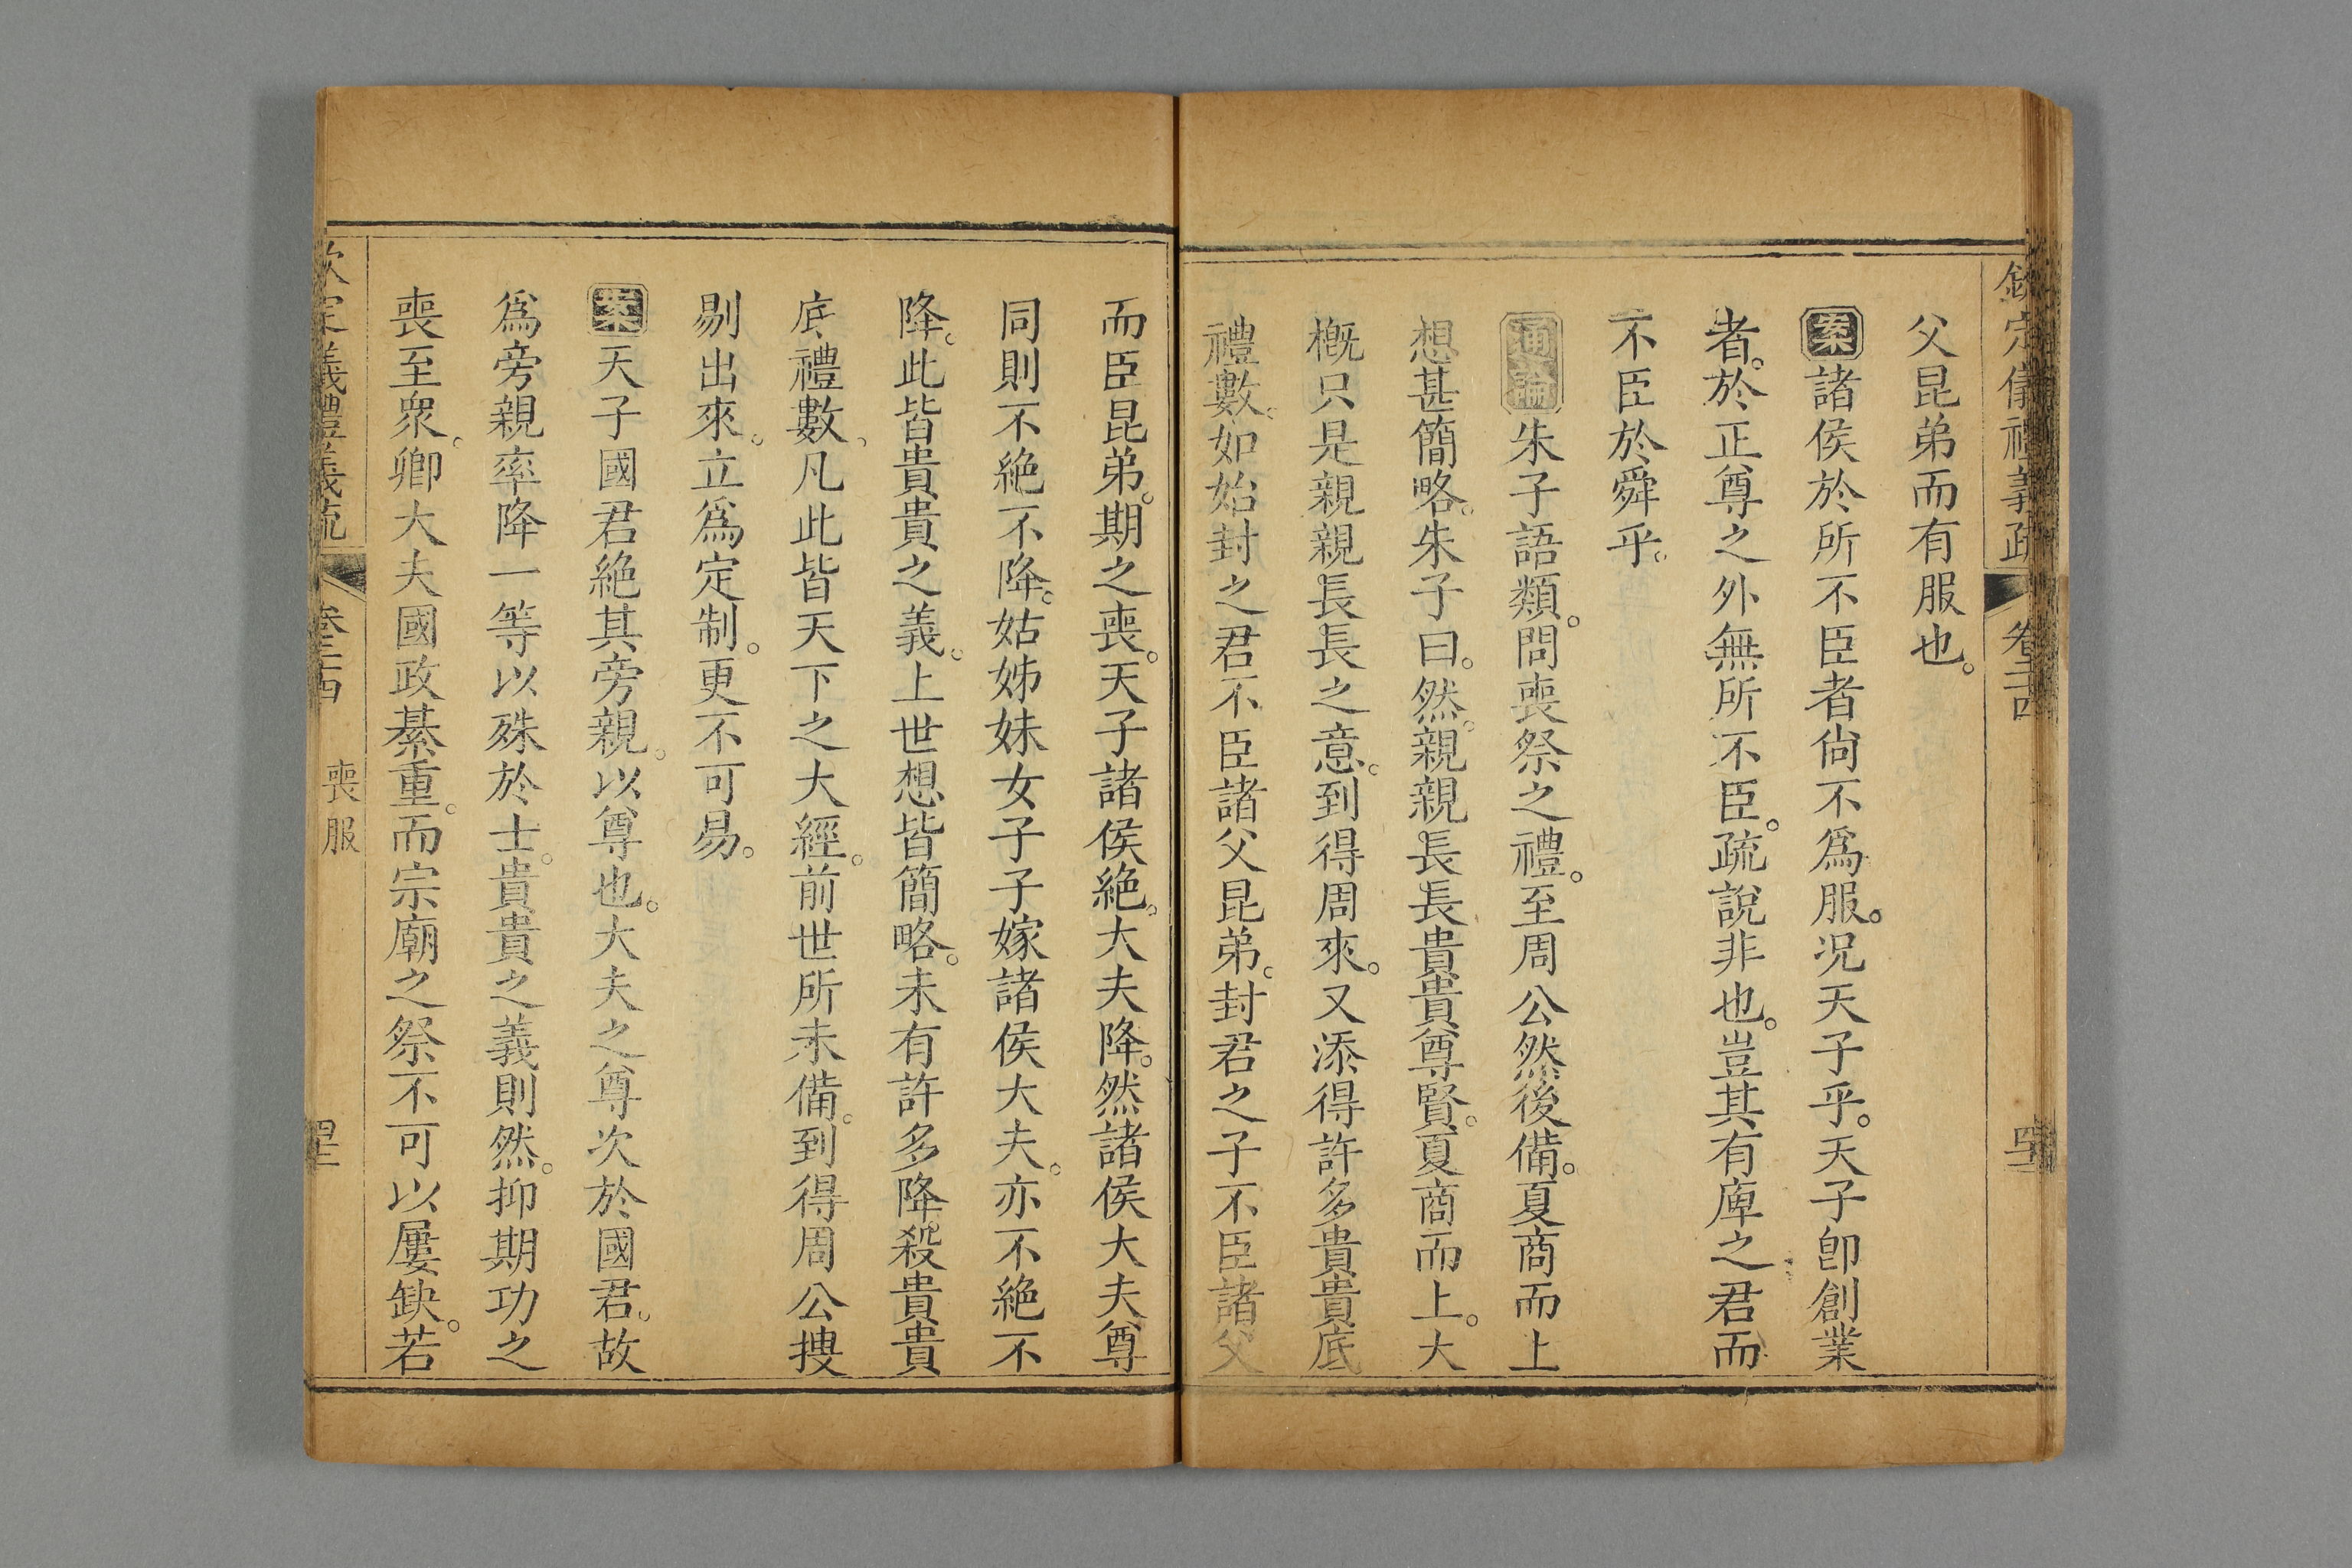 欽定儀禮義疏 卷二十四
父昆弟而有服也。
案諸侯於所不臣者尙不爲服。况天子乎。天子卽創業
者。於正尊之外無所不臣。疏說非也。豈其有庳之君而
不臣於舜乎。
通論朱子語類。問喪祭之禮。至周公然後備。夏商而上
想甚簡略。朱子曰。然。親親長長貴貴尊賢。夏商而上。大
槪只是親親長長之意。到得周來。又添得許多貴貴底
禮數。如始封之君不臣諸父昆弟。封君之子不臣諸父
而臣昆弟。期之喪。天子諸侯絶。大夫降。然諸侯大夫尊
同則不絶不降。姑姊妹女子子嫁諸侯大夫。亦不絶不
降。此皆貴貴之義。上世想皆簡略。未有許多降殺貴貴
底禮數。凡此皆天下之大經。前世所未備。到得周公搜
剔出來。立爲定制。更不可易。
案天子國君絶其旁親。以尊也。大夫之尊次於國君。故
爲旁親率降一等以殊於士。貴貴之義則然。抑期功之
喪至衆。卿大夫國政綦重。而宗廟之祭不可以屢缺。若
欽定儀禮義疏 卷二十四 喪服